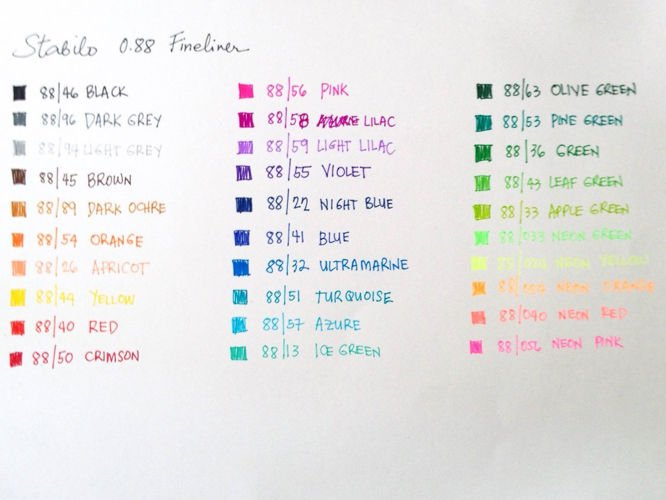 Stabilo 0.88 Fineliner
88/46 BLACK
88/96 DARK GREY
88/94 LIGHT GREY
88/45 BROWN
88/89 DARK OCHRE
88/54 ORANGE
88/26 APRICOT
88/44 YELLOW
88/40 RED
88/50 CRIMSON
88/56 PINK
88/58 LILAC
88/59 LIGHT LILAC
88/55 VIOLET
88/22 NIGHT BLUE
88/41 BLUE
88/32 ULTRAMARINE
88/51 TURQUOISE
88/57 AZURE
88/13 ICE GREEN
88/63 OLIVE GREEN
88/53 PINE GREEN
88/36 GREEN
88/43 LEAF GREEN
88/33 APPLE GREEN
88/033 NEON GREEN
88/024 NEON YELLOW
88/054 NEON ORANGE
88/040 NEON RED
88/056 NEON PINK